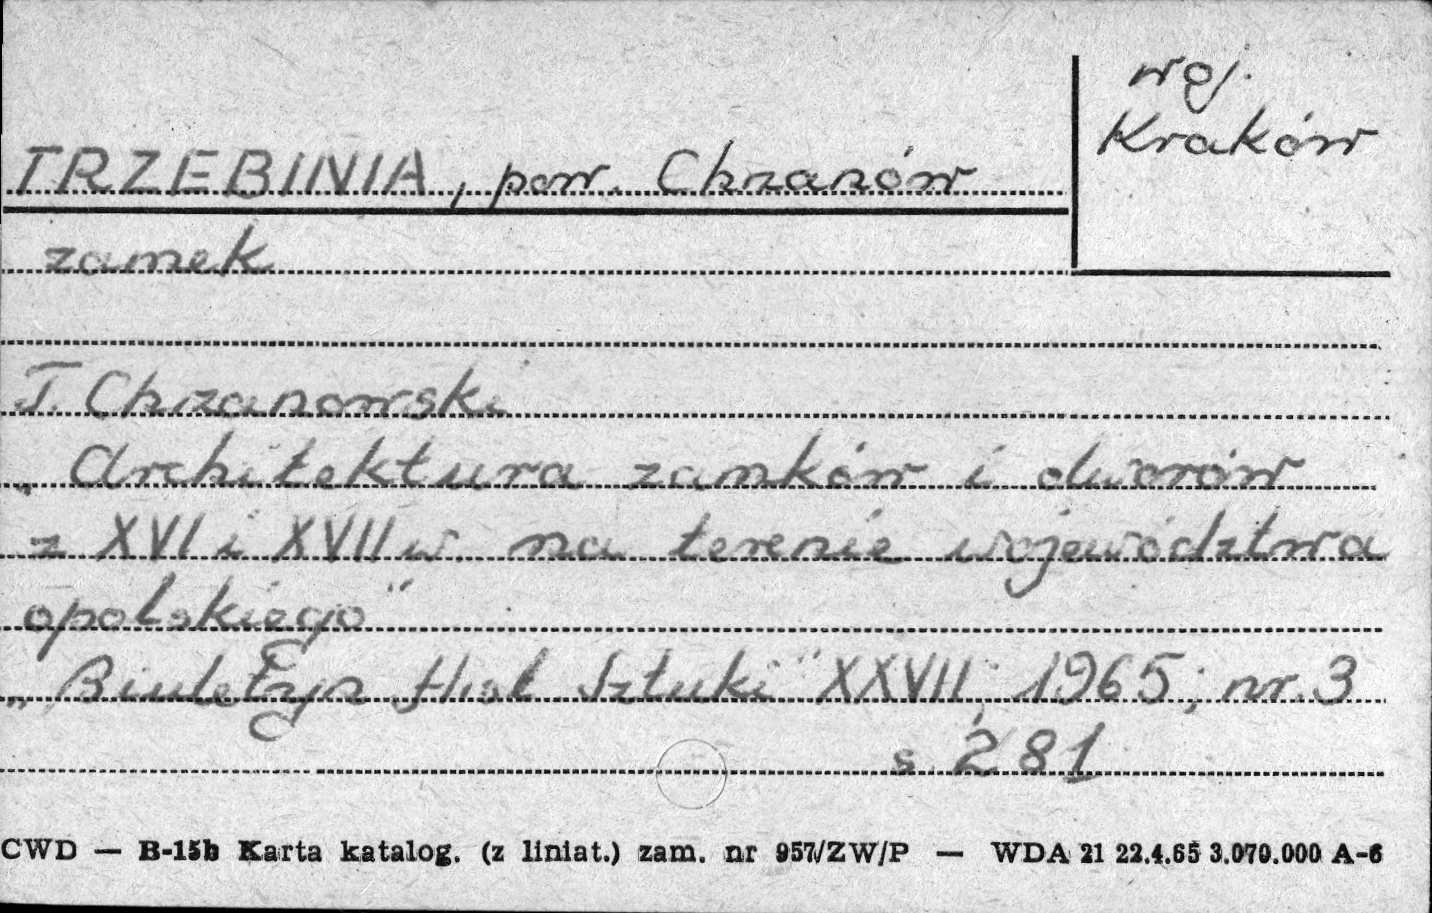 woj.
Kraków
TRZEBINIA, pow. Chrzanów
zamek
T. Chrzanowski
„Architektura zamków i dworów
z XVI i XVII w. na terenie województwa
opolskiego"
„Biuletyn Hist. Sztuki" XXVII, 1965; nr. 3
s. 281
CWD — B-15b Karta katalog. (z liniat.) zam. nr 957/ZW/P — WDA 21 22.4.65 3.070.000 A-6